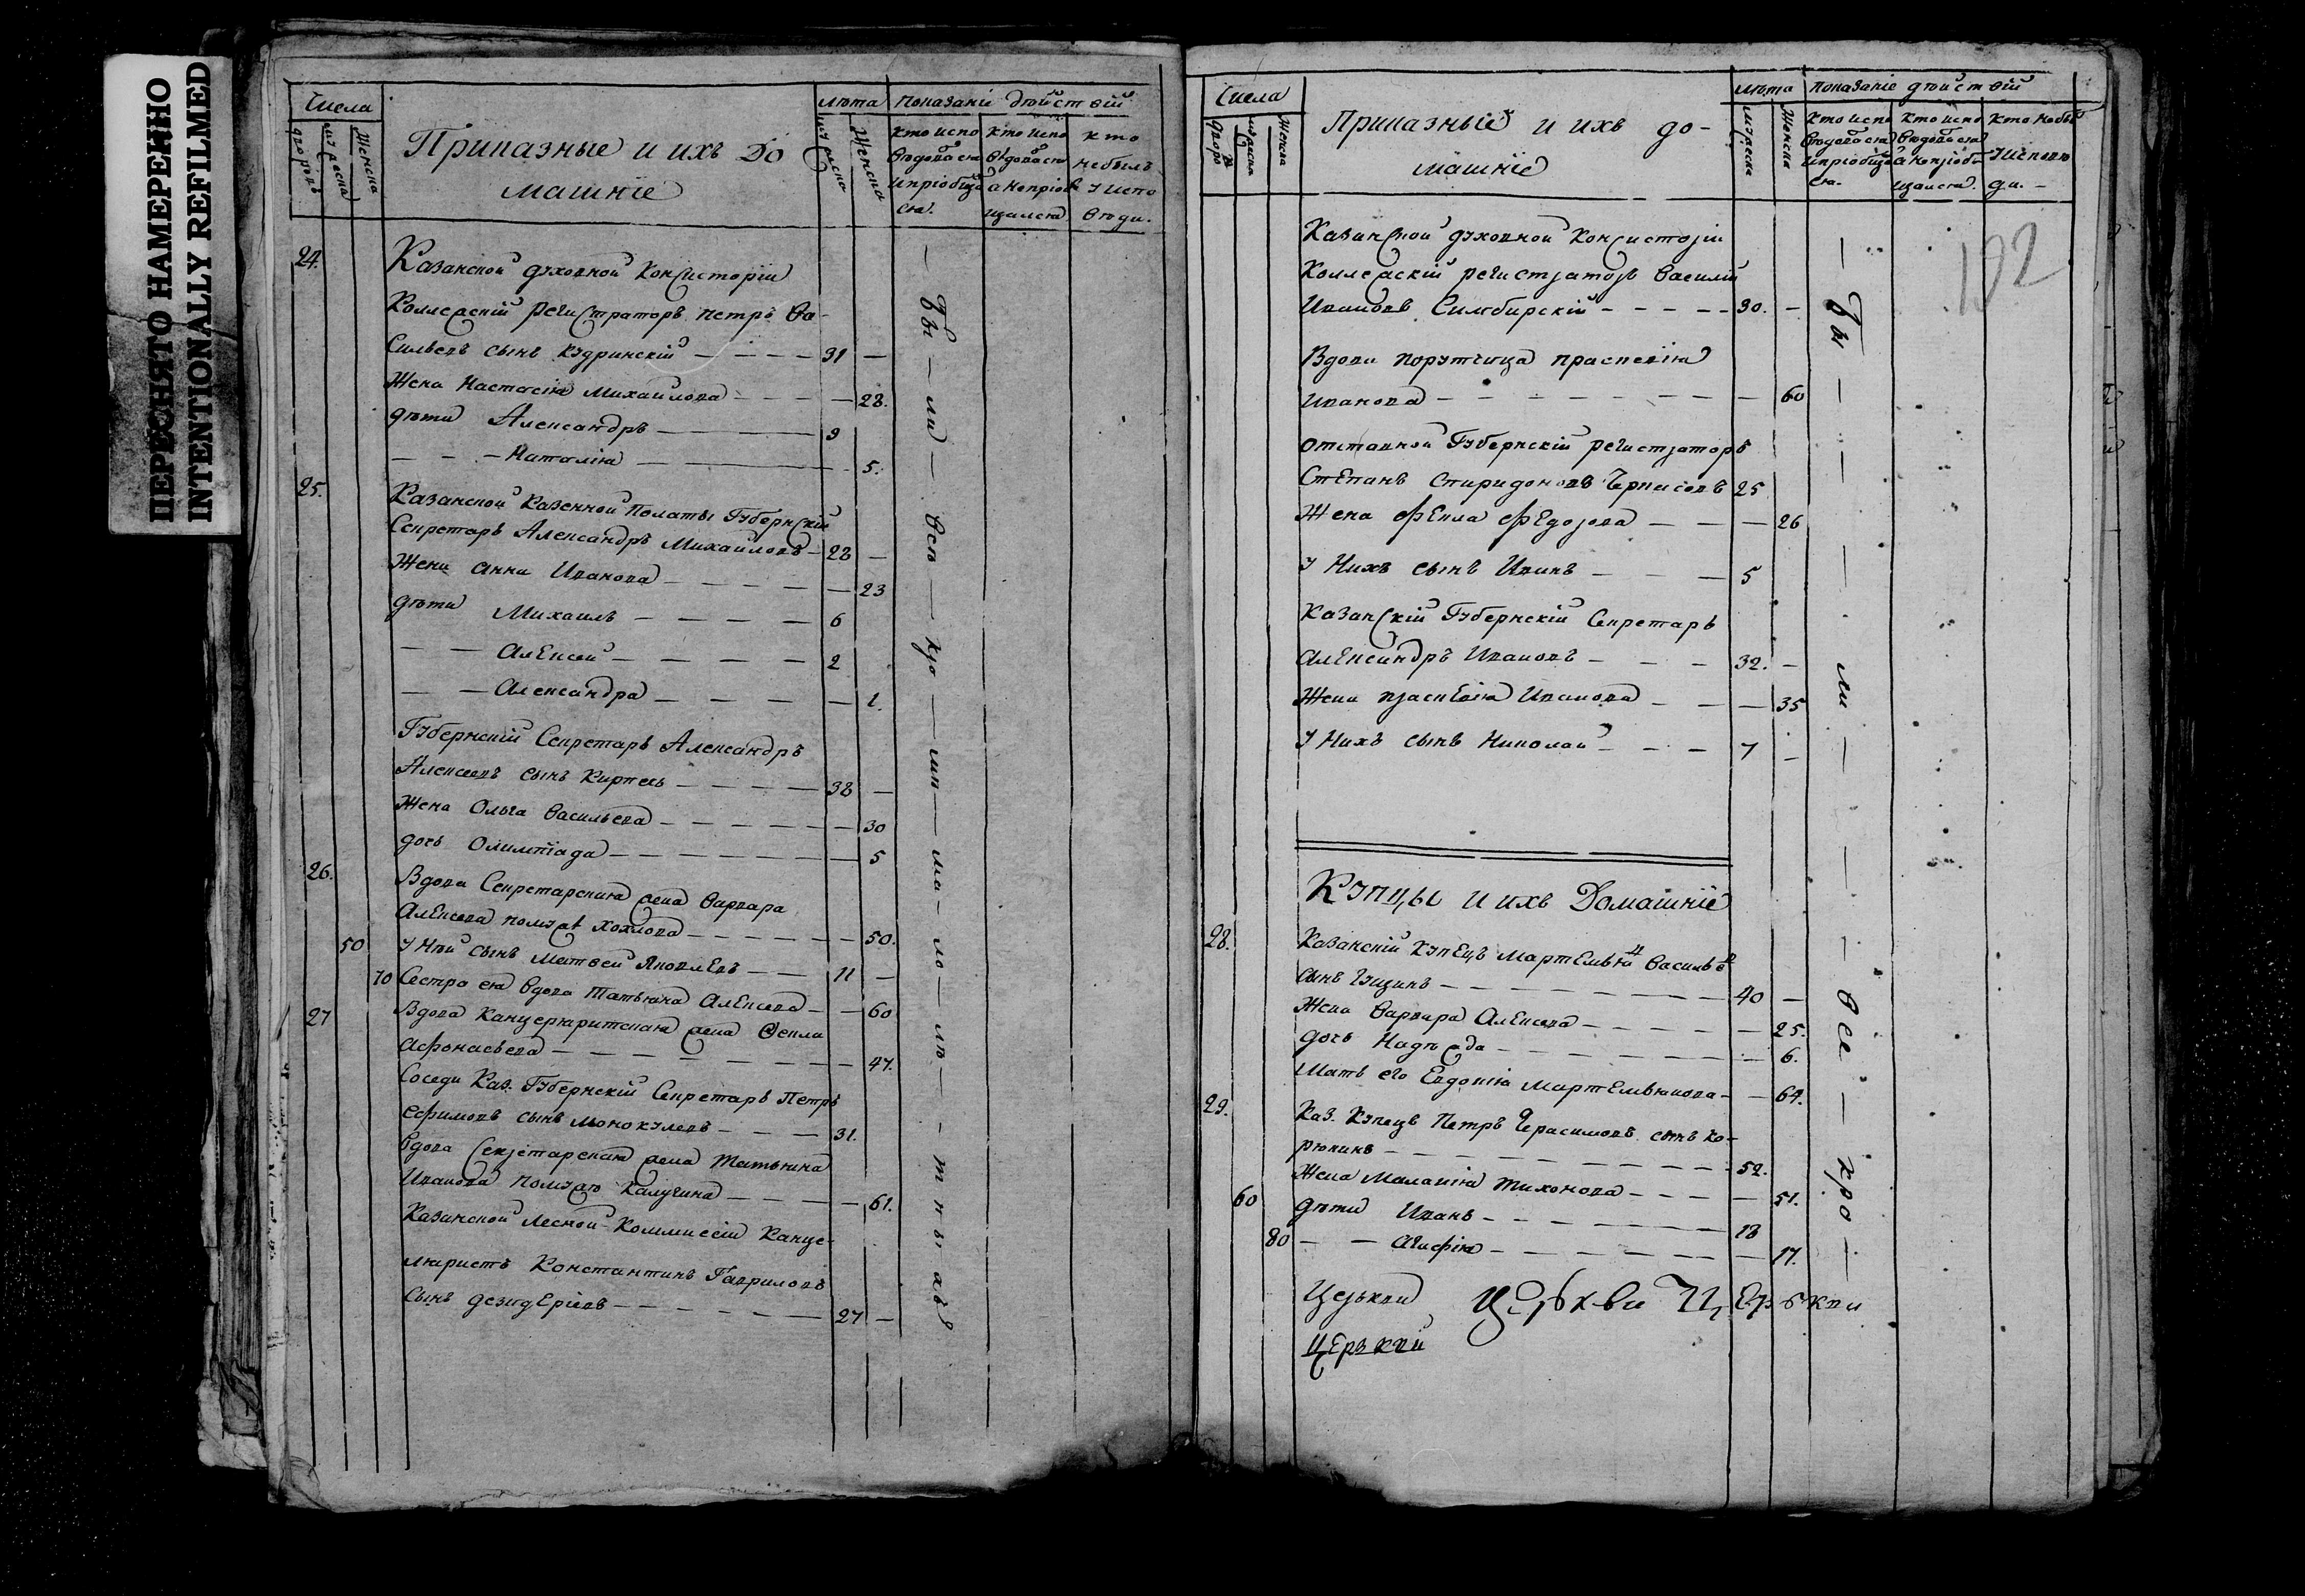 ПЕРЕСНЯТО НАМЕРЕННО
INTENTIONALLY REFILMED
Числа
дворовъ
мужеска
Женска
Приказные и ихъ до
машніе
лѣта
мужеска
Женска
показаніе дѣйствій
кто испо
вѣдовался
и пріобща
ся.
кто испо
вѣдовался
а непріоб
щался
кто
небылъ
у испо
вѣди.
24.
Казанской духовной Консисторіи
Коллежскій регистраторъ петръ Ва-
сильевъ сынъ Кудринскій 31 —
Жена Настасія Михаилова — 28.
дѣти Александръ 9
— Наталія 5.
25.
Казанской Казенной Палаты Губернскій
Секретарь Александръ Михаиловъ 28 —
Жена анна Иванова — 23
дѣти Михаилъ — 6
— — алексей — 2
— — Александра — 1.
Губернскій Секретарь Александръ
Алексеевъ сынъ 38 —
Жена Ольга васильева — 30
дочь Олимпіада — 5
26.
Вдова Секретарская жена варвара
алексеева хохлова — 50.
50 у ней сынъ матвей Яковлевъ — 11 —
70 Сестра ея вдова татьяна алексеева — 60
27 Вдова Канцеляритская жена Фекла
афонасьева — 47.
Соседи Каз. Губернскій Секретарь Петръ
ефимовъ сынъ 31.
вдова секретарская жена татьяна
Иванова Калугина — 61.
Казанской лесной Коммиссіи Канце-
ляристъ Константинъ Гавриловъ
сынъ дезидеріевъ — 27 —
Числа
дворо
въ
мужеска
Женска
Приказные и ихъ до-
машніе
лѣта
мужеска
Женска
показаніе дѣйствій
кто испо
вѣдовался
и пріобща
ся.
кто испо
вѣдовался
а непріоб
щался.
кто небыл
у исповѣ
ди. —
192
Казанской духовной Консисторіи
Коллежскій регистраторъ василій
Ивановъ Симбирскій — 30. —
Вдова порутчица прасковія
Иванова — 60
отставной Губернскій регистраторъ
Степанъ Спиридоновъ 25
Жена фекла федорова — 26
у Нихъ сынъ Иванъ — 5
Казанскій Губернскій Секретарь
александръ Ивановъ — 32. —
Жена прасковія Иванова — 35
у Нихъ сынъ Николай — 7 —
Купцы и ихъ Домашніе
28. Казанскій купецъ мартемьянъ васильевъ
сынъ — 40 —
Жена варвара алексеева — 25.
дочь Надежда — 6.
Мать его Евдокія мартемьянова — 64.
29. Каз. купецъ Петръ герасимовъ сынъ ко-
рюкинъ — 52.
Жена Маланія тихонова — 51.
60 дѣти Иванъ — 18
80 — — агафія — 17.
Церькви церькви Церькви
Церькви